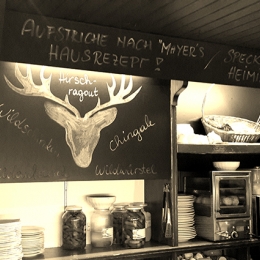 AUFSTRICHE NACH "MAYER'S
HAUSREZEPT!
/ SPECK
HEIMI
Hirsch-
ragout
Chingale
Wildwürstel